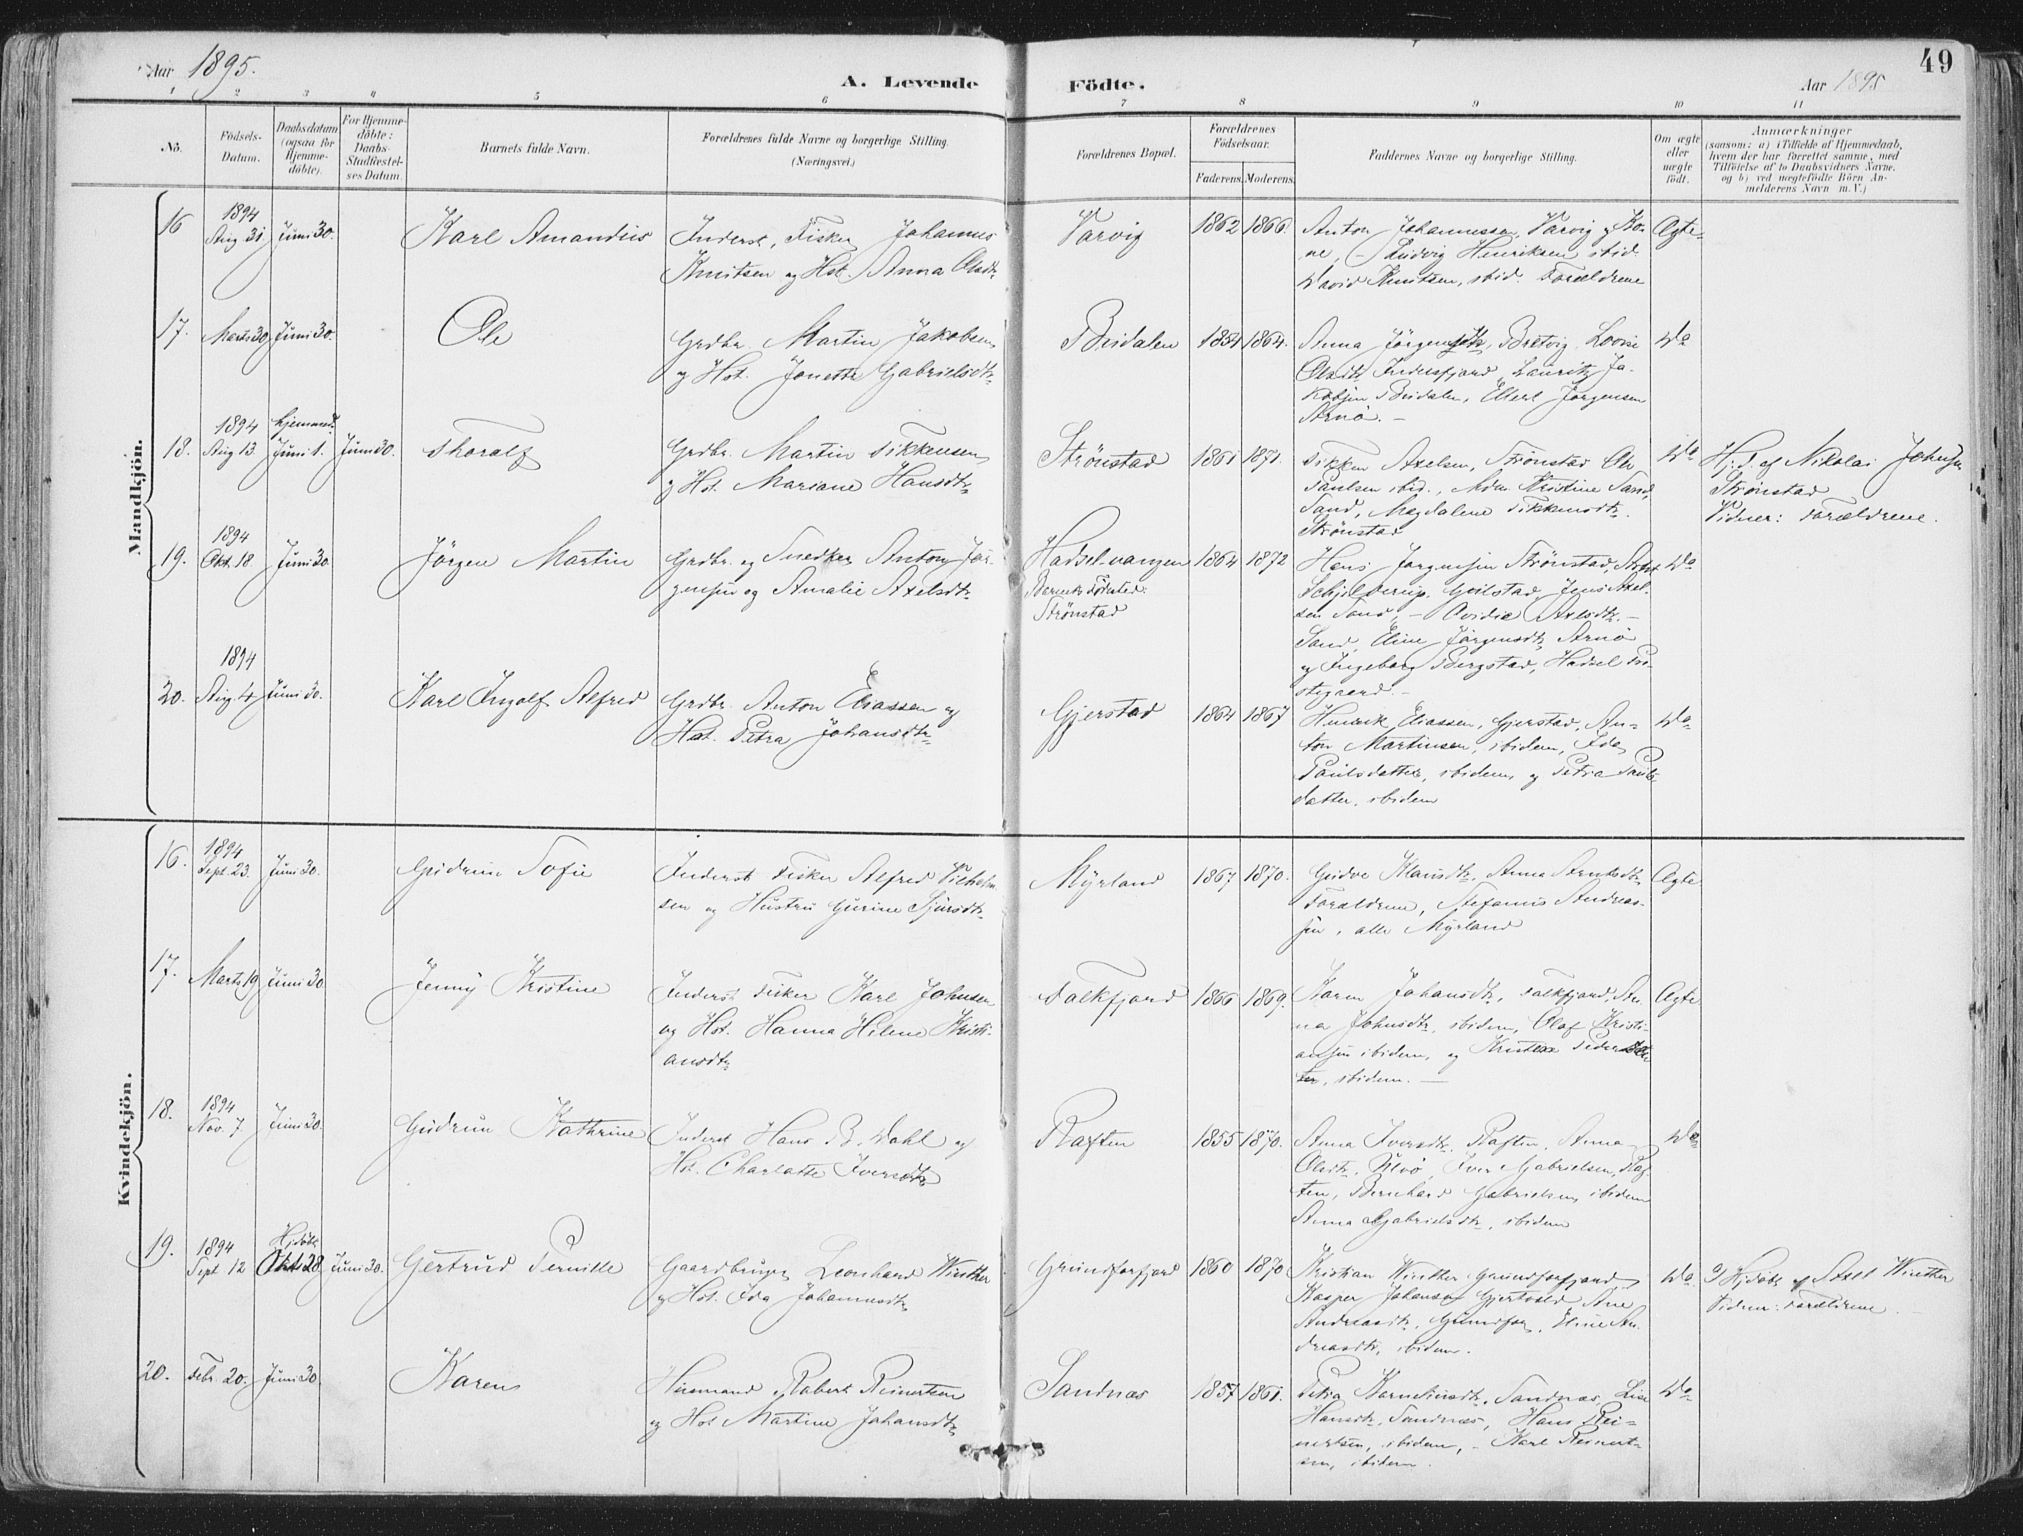 Aar 1895.
A. Levende
Födte.
Aar 1895
49
1 2 3 4 5 6 7 8 9 10 11
No.
Födsels-
Datum.
Daabsdatum
(ogsaa for
Hjemme-
döbte).
For Hjemme-
döbte:
Daabs-
Stadfæstel-
ses Datum.
Barnets fulde Navn.
Forældrenes fulde Navne og borgerlige Stilling.
(Næringsvei.)
Forældrenes Bopæl.
Forældrenes
Födselsaar.
Faderens. Moderens.
Faddernes Navne og borgerlige Stilling.
Om ægte
eller
uægte
født.
Anmærkninger
(saasom: a) i Tilfælde af Hjemmedaab,
hvem der har forrettet samme, med
Tilføielse af to Daabsvidners Navne.
og b) ved uægtefödte Börn An-
melderens Navn m. V.)
Mandkjön.
16 1894 Aug 31 Juni 30.
Karl Amandus
Inderst, Fisker Johannes
Knutsen og Hst. Anna Olsdtr
Varvig
1862 1866.
Anton Johannessen, Varvig og Ko-
ne, Ludvig Henriksen ibid
David Knutsen, ibid. Forældrene
Ægte
17. Marts 30 Juni 30.
Ole
Grdbr. Martin Jakobsen
og Hst. Jonette Gabrielsdtr
Beisdalen
1834 1864.
Anna Jörgensdtr, Bretvig, Lovise
Olsdtr Indresfjord, Lauritz Ja-
kobsen Beisdalen, Ellert Jörgensen
Arnö. -
Do
18. 1894 Aug 13. Hjemmed. Juni 1. Juni 30.
Thoralf
Grdbr. Martin Tikkensen
og Hst. Mariane Hansdtr
Strönstad
1861 1871.
Tikken Axelsen, Strönstad Ole
Paulsen ibid., Mdm Kristine Sand,
Sand, Magdalene Tikkensdtr.
Strönstad
Do
Hj.d. af Nikolai Johnsen
Strönstad
Vidner: Forældrene.
19. 1894 Okt. 18. Juni 30
Jörgen Martin
Grdbr. og Snedker Anton Jör-
gensen og Amalie Axelsdtr
Hadsel-vangen
Barnets Födested:
Strönstad
1864 1872
Hans Jörgensen Strönstad,
Schjelderup, Jens Axel-
sen Sand, - Ovidia Axelsdtr. -
Sand, Eline Jörgensdtr Arnö
og Ingeborg Bergstad, Hadsel Pre-
stegaard. -
Do
20. 1894 Aug 4 Juni 30.
Karl Ingolf Alfred
Grdbr. Anton Eliassen og
Hst. Petra Johansdtr
Gjerstad
1864 1867
Henrik Eliassen, Gjerstad, An-
ton Martinsen, ibidem, Ida
Paulsdatter, ibidem, og Petra Pauls-
datter, ibidem
Do
Kvindekjön.
16. 1894 Sept. 23. Juni 30.
Gudrun Sofie
Inderst Fisker Alfred Vilhelm-
sen og Hustru Gurine Sjursdtr
Myrland
1867 1870.
Gudve Klausdtr, Anna Arntsdtr
Forældrene, Stefanus Andreas-
sen, alle Myrland
Ægte
17. Marts 19 Juni 30
Jenny Kristine
Inderst Fisker Karl Johnsen
og Hst. Hanna Helene Kristi-
ansdtr
Falkfjord
1866 1869.
Karen Johansdtr, Falkfjord, An-
na Johnsdtr, ibidem, Olaf Kristi-
ansen ibidem, og Kristine Pedersdat-
ter, ibidem. -
Ægte
18. 1894 Nov. 7 Juni 30.
Gudrun Kathrine
Inderst Hans B. Dahl og
Hst. Charlotte Iversdtr
Raften
1855 1870.
Anna Iversdtr, Raften, Anna
Olsdtr, Ulvö, Iver Gabrielsen, Raf-
ten, Bernhard Gabrielsen, ibidem
Anna Gabrielsdtr, ibidem
Do
19. 1894 Sept 12 Hjdöbt Okt 28 Juni 30.
Gertrud Pernille
Gaardbruger Leonhard Winther
og Hst. Ida Johannesdtr
Grundforfjord
1860 1870
Kristian Winther Grundforfjord,
Kasper Johansen Ane
Andreasdtr, Grundfor, Eline An-
dreasdtr, ibidem.
Do
a) Hjdöbt af Axel Winther
Vidner: Forældrene.
20. Febr. 20. Juni 30.
Karen
Husmand Robert Reinertsen
og Hst Martine Johansdtr
Sandnæs
1857 1861.
Petra Korneliusdtr, Sandnæs, Lise
Hansdtr, Sandnæs, Hans Rei-
nertsen, ibidem, - Karl Reinert-
sen, ibidem.
Do